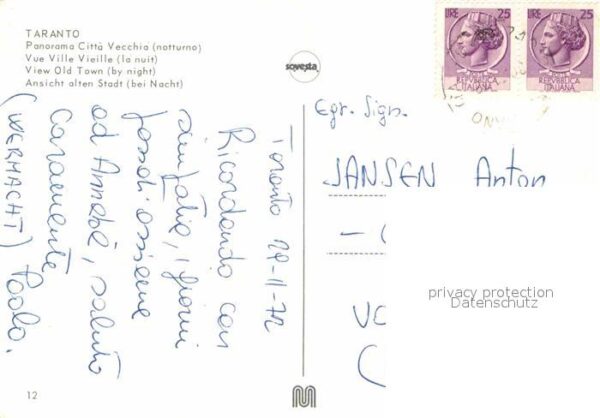 TARANTO
Panorama Città Vecchia (notturno)
Vue Ville Vieille (la nuit)
View Old Town (by night)
Ansicht alten Stadt (bei Nacht)
sovesta
LIRE 25
REPVBBLICA
ITALIANA
LIRE 25
REPVBBLICA
ITALIANA
Taranto 29-11-72
Ricordando con
simpatia, i giorni
passati assieme
ad Annabè, saluto
caramente
(WERMACHT) Paolo.
Egr. Sign.
JANSEN Anton
privacy protection
Datenschutz
12